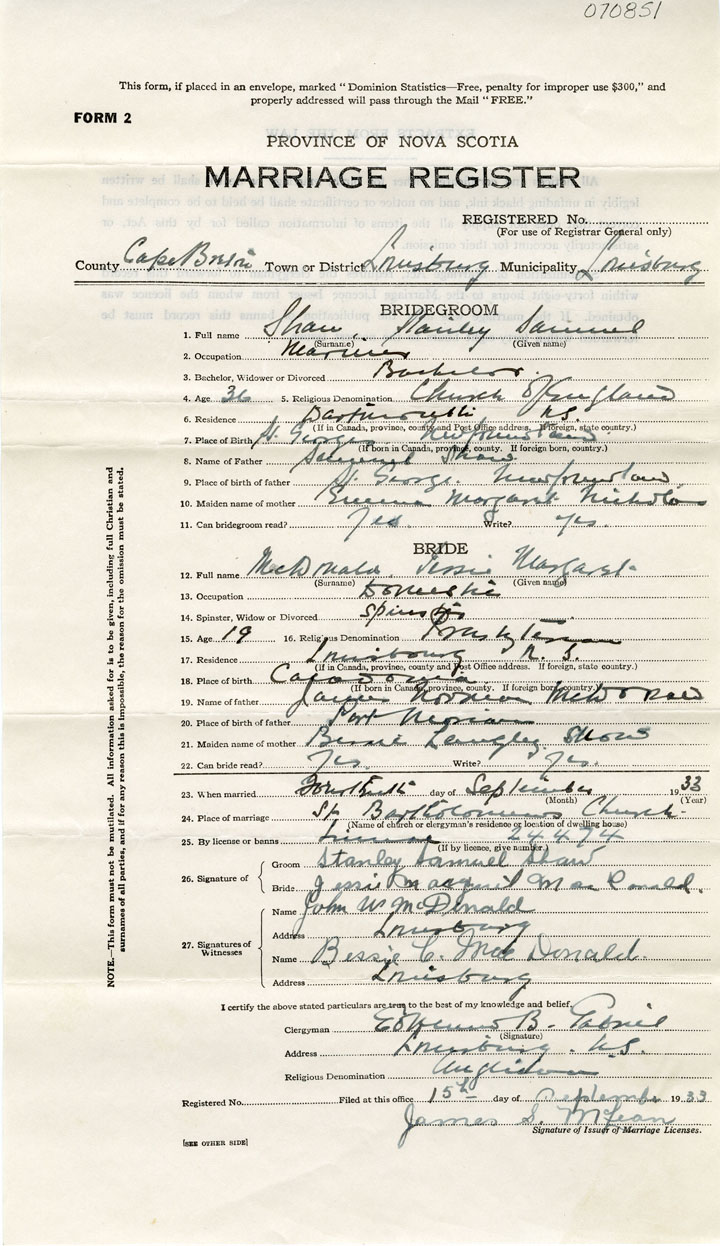 070851
This form, if placed in an envelope, marked "Dominion Statistics—Free, penalty for improper use $300," and
properly addressed will pass through the Mail "FREE."
FORM 2
PROVINCE OF NOVA SCOTIA
MARRIAGE REGISTER
REGISTERED No.
(For use of Registrar General only)
County Cape Breton Town or District Louisburg Municipality Louisburg
BRIDEGROOM
1. Full name Shaw, Stanley Samuel
(Surname) (Given name)
2. Occupation Mariner
3. Bachelor, Widower or Divorced Bachelor.
4. Age 36 5. Religious Denomination Church of England
6. Residence Dartmouth N.S.
(If in Canada, province, county and Post Office address. If foreign, state country.)
7. Place of Birth St. Georges Newfoundland
(If born in Canada, province, county. If foreign born, country.)
8. Name of Father Samuel Shaw
9. Place of birth of father St. George. Newfoundland
10. Maiden name of mother Margaret Nicholas
11. Can bridegroom read? Yes. Write? Yes.
BRIDE
12. Full name McDonald Jessie Margaret
(Surname) (Given name)
13. Occupation Domestic
14. Spinster, Widow or Divorced Spinster
15. Age 19 16. Religious Denomination Presbyterian
17. Residence Louisbourg N.S.
(If in Canada, province, county and Post Office address. If foreign, state country.)
18. Place of birth
(If born in Canada, province, county. If foreign born, country.)
19. Name of father James Norman McDonald
20. Place of birth of father Port Morien
21. Maiden name of mother Bessie Langley
22. Can bride read? Yes. Write? Yes.
23. When married Fourteenth day of September 1933
(Month) (Year)
24. Place of marriage St Bartholomews Church
(Name of church or clergyman's residence or location of dwelling house)
25. By license or banns License 24474
(If by licence, give number.)
26. Signature of
Groom Stanley Samuel Shaw
Bride Jessie Mac Donald.
27. Signatures of Witnesses
Name John W McDonald
Address Louisburg
Name Bessie C. Mac Donald.
Address Louisburg
I certify the above stated particulars are true to the best of my knowledge and belief.
Clergyman B.
(Signature)
Address Louisburg. N.S.
Religious Denomination Anglican
Registered No. Filed at this office 15th day of September 1933
James S. McLean
Signature of Issuer of Marriage Licenses.
[SEE OTHER SIDE]
NOTE.—This form must not be mutilated. All information asked for is to be given, including full Christian and
surnames of all parties, and if for any reason this is impossible, the reason for the omission must be stated.